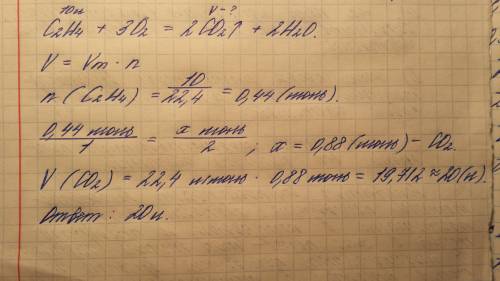 10л V - ?
C₂H₄ + 3O₂ = 2CO₂↑ + 2H₂O.
V = Vm · n
n (C₂H₄) = 10/22,4 = 0,44 (моль).
0,44 моль/1 = x моль/2 ; x = 0,88 (моль) - CO₂.
V (CO₂) = 22,4 л/моль · 0,88 моль = 19,712 ≈ 20 (л).
Ответ: 20 л.